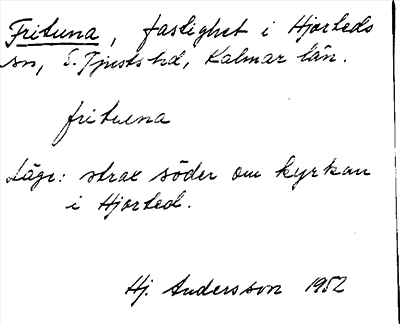 Frituna, fastighet i Hjorteds
sn, S. Tjusts hd, Kalmar län.
frituna
Läge: strax söder om kyrkan
i Hjorted.
Hj. Andersson 1952